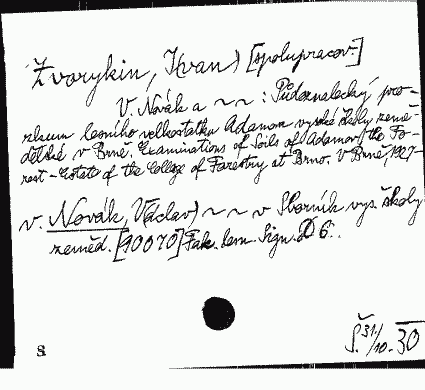 Žvorykin, Ivan) [spolupracov.]
V. Novák a ~ ~ : Půdoznalecký pro-
zkum lesního velkostatku Adamov vysoké školy země-
dělské v Brně. Examinations of Soils of Adamov/the Fo-
rest-Estate of the College of Forestry at Brno. V Brně, 1927-
v. Novák, Václav) ~ ~ v Sborník vys. školy
zeměd. [90070] Fak. lesn. Sign. D 6.
S
Š. 31./10. 30